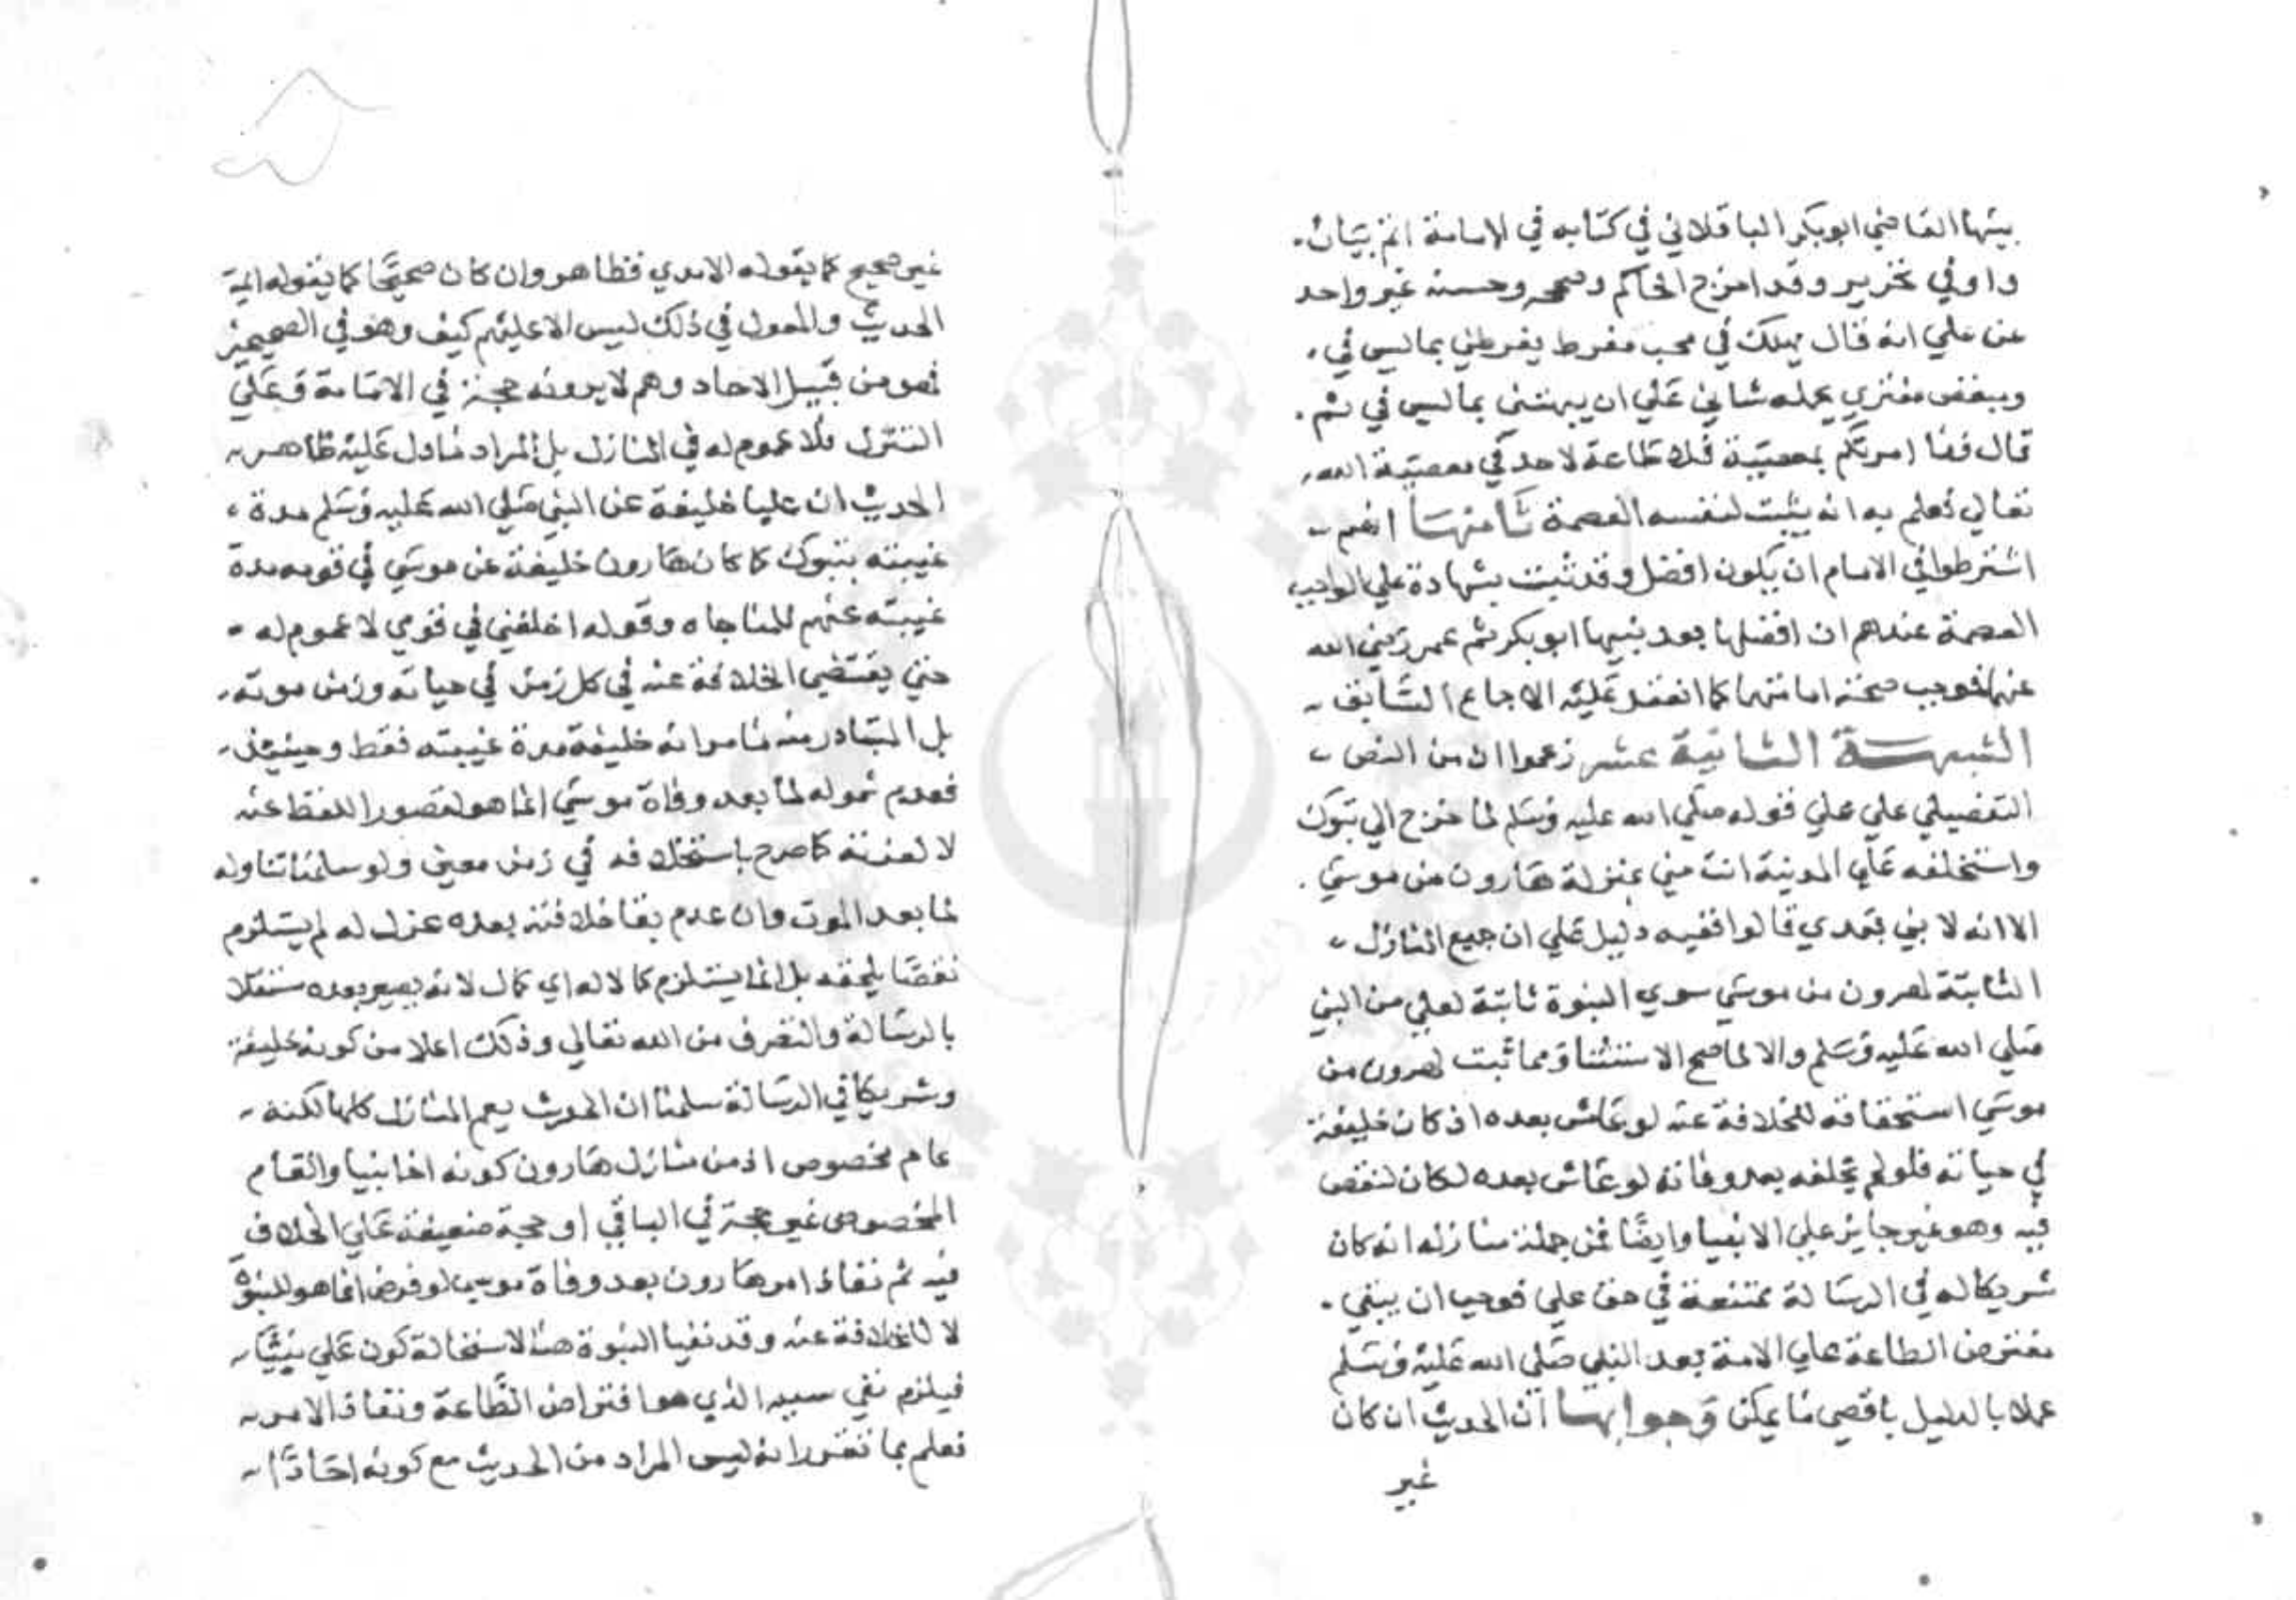 بينها القاضي ابو بكر الباقلاني في كتابه في الامامة اتم بيان
واوفي تحرير وقد اخرج الحاكم وصححه وحسنه غير واحد
عن علي انه قال يهلك في محب مفرط يفرطني بما ليس في
ومبغض مفتري يحمله شاني علي ان يبهتني بما ليس في ثم
قال فما امرتكم بمعصية فلا طاعة لاحد في معصية الله
تعالي فعلم به انه يثبت لنفسه العصمة ثامنها انهم
اشترطوا في الامام ان يكون افضل وقد ثبت بشهادة علي الواجب
العصمة عندهم ان افضلها بعد نبيها ابو بكر ثم عمر رضي الله
عنهما فوجب صحة امامتهما كما انعقد عليه الاجماع السابق
الشبهة الثانية عشر زعموا ان من النص
التفصيلي علي علي قوله صلي الله عليه وسلم لما خرج الي تبوك
واستخلفه علي المدينة انت مني بمنزلة هارون من موسي
الا انه لا نبي بعدي قالوا ففيه دليل علي ان جميع المنازل
الثابتة لهرون من موسي سوي النبوة ثابتة لعلي من النبي
صلي الله عليه وسلم والا لما صح الاستثنا ومما ثبت لهرون من
موسي استحقاقه للخلافة عنه لو عاش بعده اذ كان خليفة
في حياته فلو لم يخلفه بعد وفاته لو عاش بعده لكان لنقص
فيه وهو غير جايز علي الانبيا وايضا فمن جملة منازله انه كان
شريكا له في الرسالة ممتنعة في حق علي فوجب ان يبقي
مفترض الطاعة علي الامة بعد النبي صلي الله عليه وسلم
عملا بالدليل باقصي ما يمكن وجوابها ان الحديث ان كان
غير
غير صحيح كما يقوله الامدي فظاهر وان كان صحيحا كما يقوله ايمة
الحديث والمعول في ذلك ليس الا عليهم كيف وهو في الصحيحين
فهو من قبيل الاحاد وهم لا يرونه حجة في الامامة وعلي
التنزل فلا عموم له في المنازل بل المراد ما دل عليه ظاهر
الحديث ان عليا خليفة عن النبي صلي الله عليه وسلم مدة
غيبته بتبوك كما كان هارون خليفة عن موسي في قومه مدة
غيبته عنهم للمناجاه وقوله اخلفني في قومي لا عموم له
حتي يقتضي الخلافة عنه في كل زمن في حياته وزمن موته
بل المتبادر منه ما مر انه خليفة مدة غيبته فقط وحينئذ
فعدم شموله لما بعد وفاة موسي انما هو لقصور اللفظ عنه
لا لعزله كما صرح باستخلافه في زمن معين ولو سلمنا تناوله
لما بعد الموت وان عدم بقا خلافته بعده عزل له لم يستلزم
نقصا يلحقه بل انما يستلزم كمالا له اي كمال لانه يصير بعده مستقلا
بالرسالة والتصرف من الله تعالي وذلك اعلا من كونه خليفة
وشريكا في الرسالة سلمنا ان الحديث يعم المنازل كلها لكنه
عام مخصوص اذ من منازل هارون كونه اخا نبيا والعام
المخصوص غير حجة في الباقي او حجة ضعيفة علي الخلاف
فيه ثم نفاذ امر هارون بعد وفاة موسي لو فرض انما هو للنبوة
لا للخلافة عنه وقد نفيا النبوة هنا لاستحالة كون علي نبيا
فيلزم نفي سببه الذي هو افتراض الطاعة ونفاذ الامر
فعلم بما تقرر انه ليس المراد من الحديث مع كونه احادا